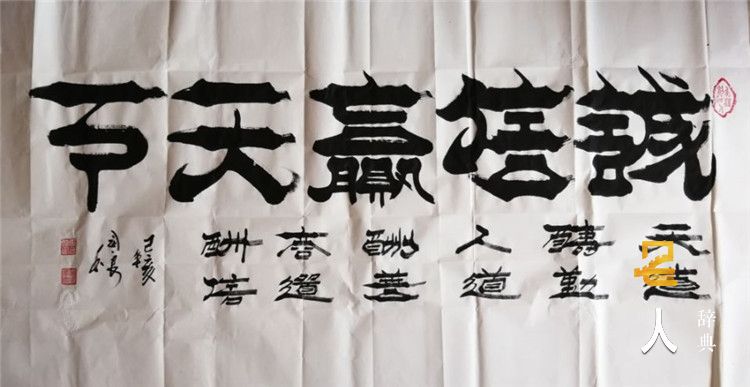 誠信贏天下
天道
酬勤
人道
酬善
商道
酬信
己亥年
人
辞典